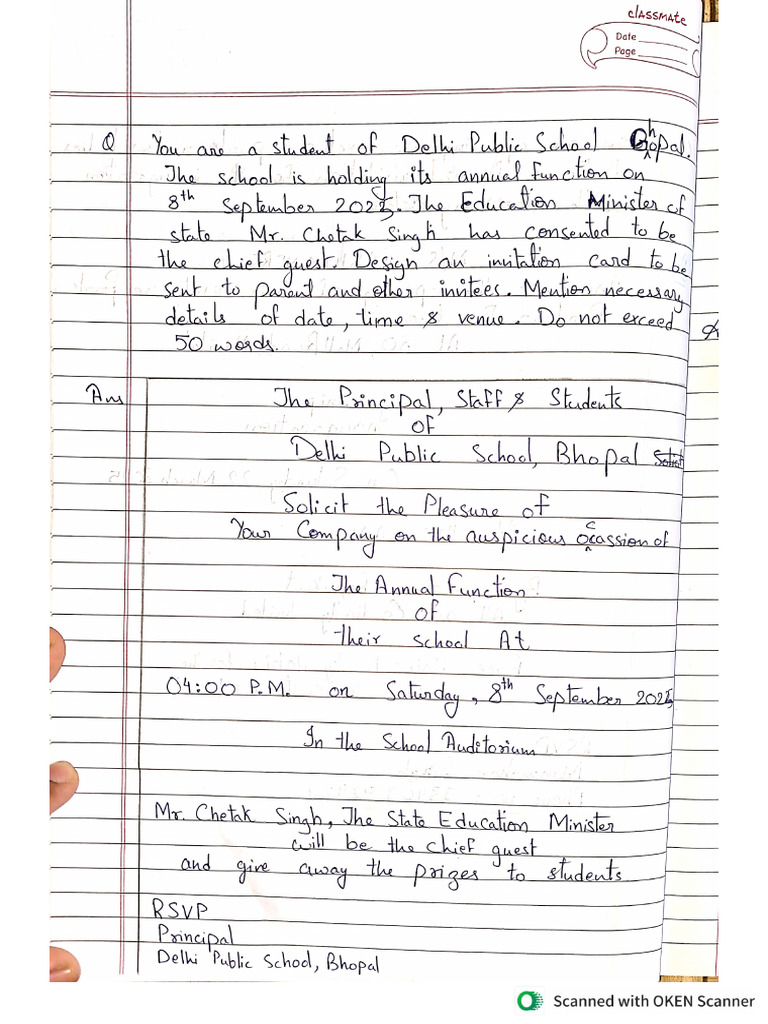 classmate
Date
Page
Q You are a student of Delhi Public School Bhopal.
The school is holding its annual function on
8th September 2025. The Education Minister of
state Mr. Chetak Singh has consented to be
the chief guest. Design an invitation card to be
sent to parent and other invitees. Mention necessary
details of date, time & venue. Do not exceed
50 words.
Ans The Principal, Staff & Students
of
Delhi Public School, Bhopal
Solicit the Pleasure of
Your Company on the auspicious occassion of
The Annual Function
of
their school At
04:00 P.M. on Saturday, 8th September 2025
In the School Auditorium
Mr. Chetak Singh, The State Education Minister
will be the chief guest
and give away the prizes to students
RSVP
Principal
Delhi Public School, Bhopal
Scanned with OKEN Scanner